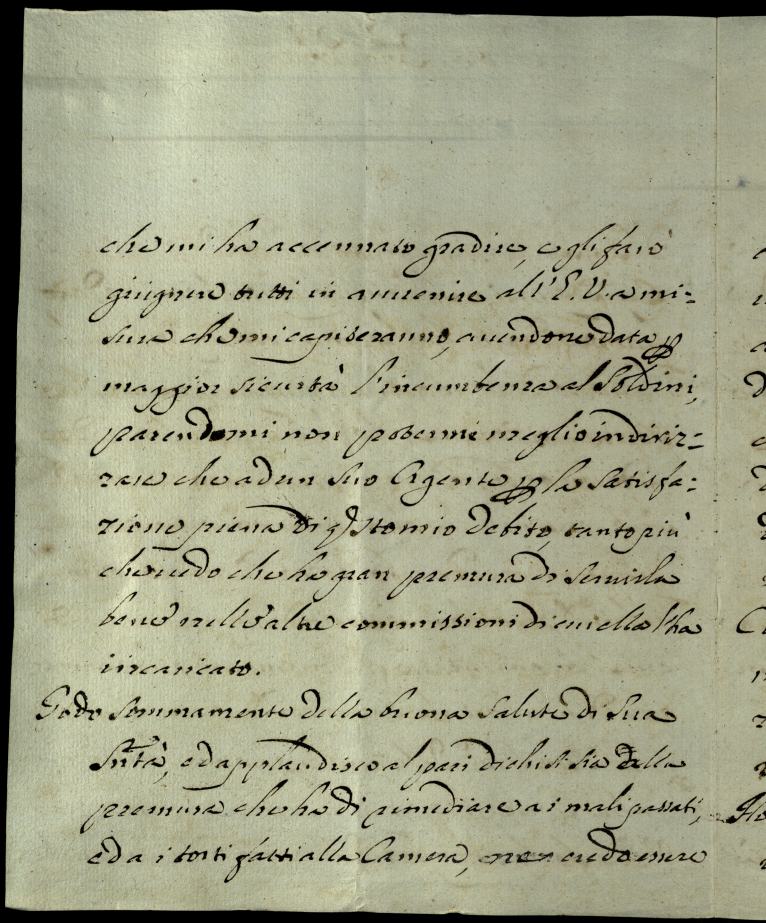 che mi ha accennato gradire, e gli farò
giugnere tutti in avvenire all'E.V. a mi=
sura che mi capiteranno, avendone data p
maggior sicurtà l'incumbenza al Soldini,
parendomi non potermi meglio indiriz=
zare che ad un suo Agente p la satisfa=
zione piena di qsto mio debito, tanto più
che vedo che ha gran premura di servirla
bene nelle altre commissioni di cui ella l'ha
incaricato.
Godo sommamente della buona salute di Sua
Sntà, ed applaudisco al pari di chi si sia della
premura che ha di rimediare a i mali passati,
ed a i torti fatti alla Camera, credo essere